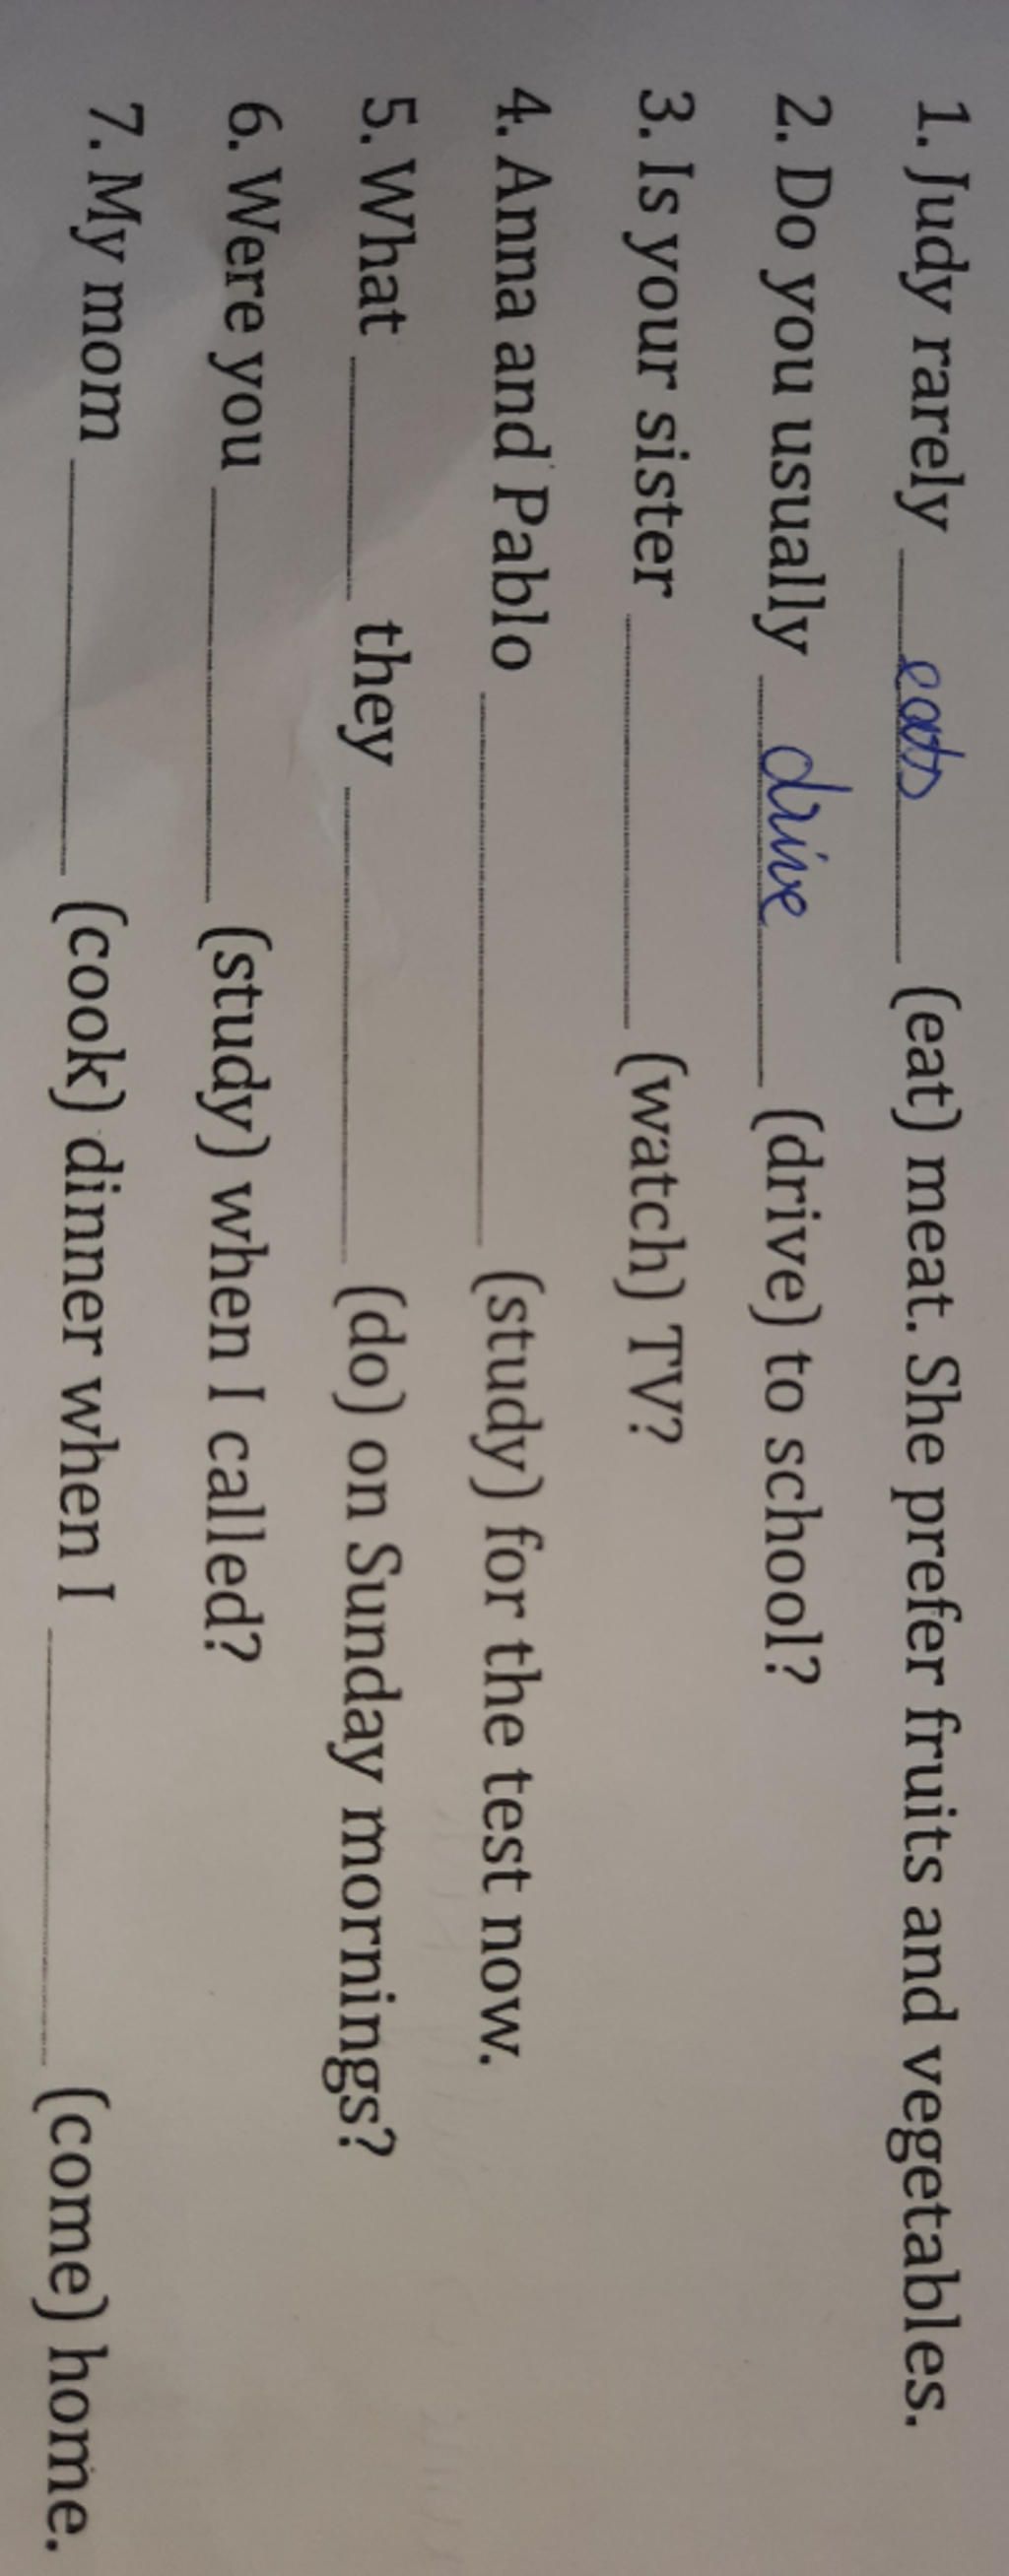 1. Judy rarely eats (eat) meat. She prefer fruits and vegetables.
2. Do you usually drive (drive) to school?
3. Is your sister ____________ (watch) TV?
4. Anna and Pablo ____________ (study) for the test now.
5. What ________ they ____________ (do) on Sunday mornings?
6. Were you ____________ (study) when I called?
7. My mom ____________ (cook) dinner when I ____________ (come) home.